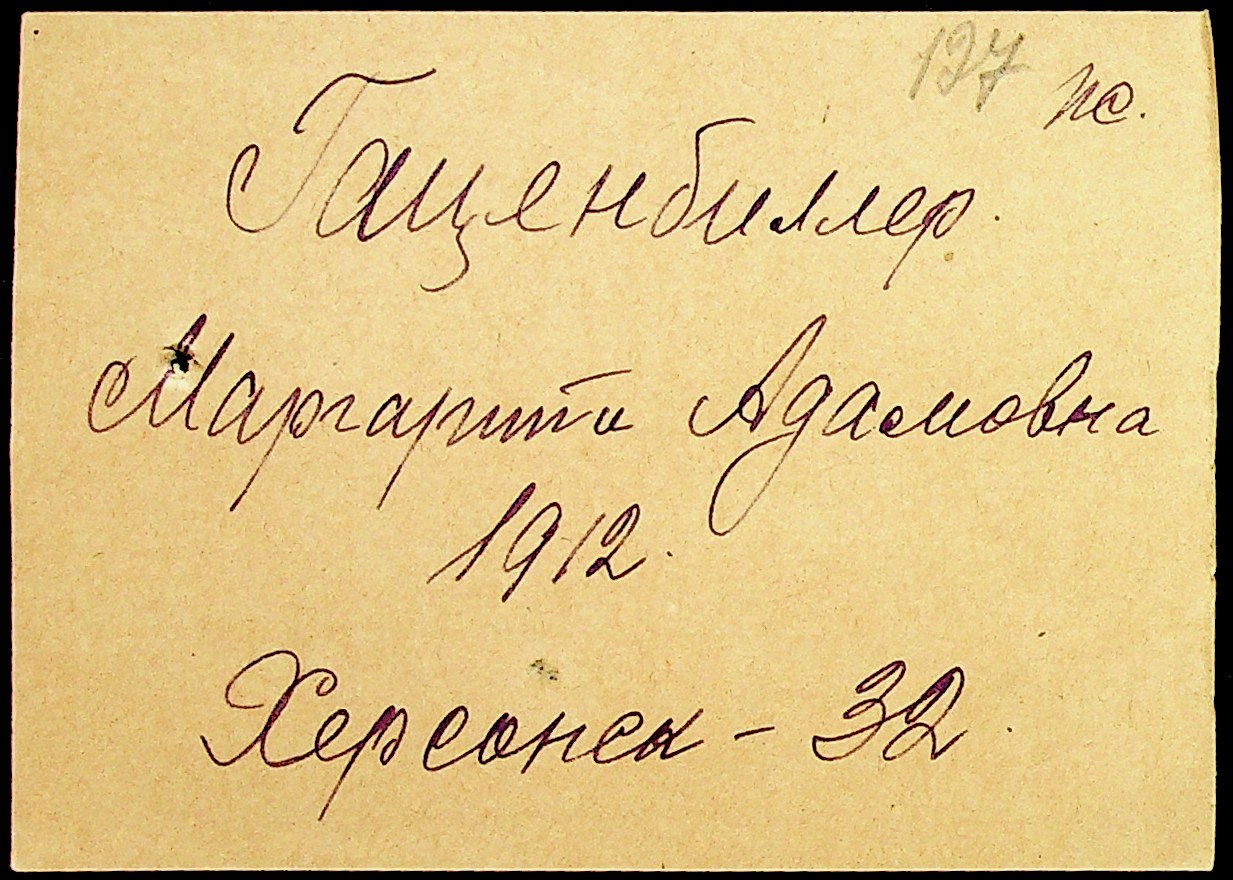 127 пс.
Гаценбиллер.
Маргарита Адамовна
1912.
Херсонск - 32.